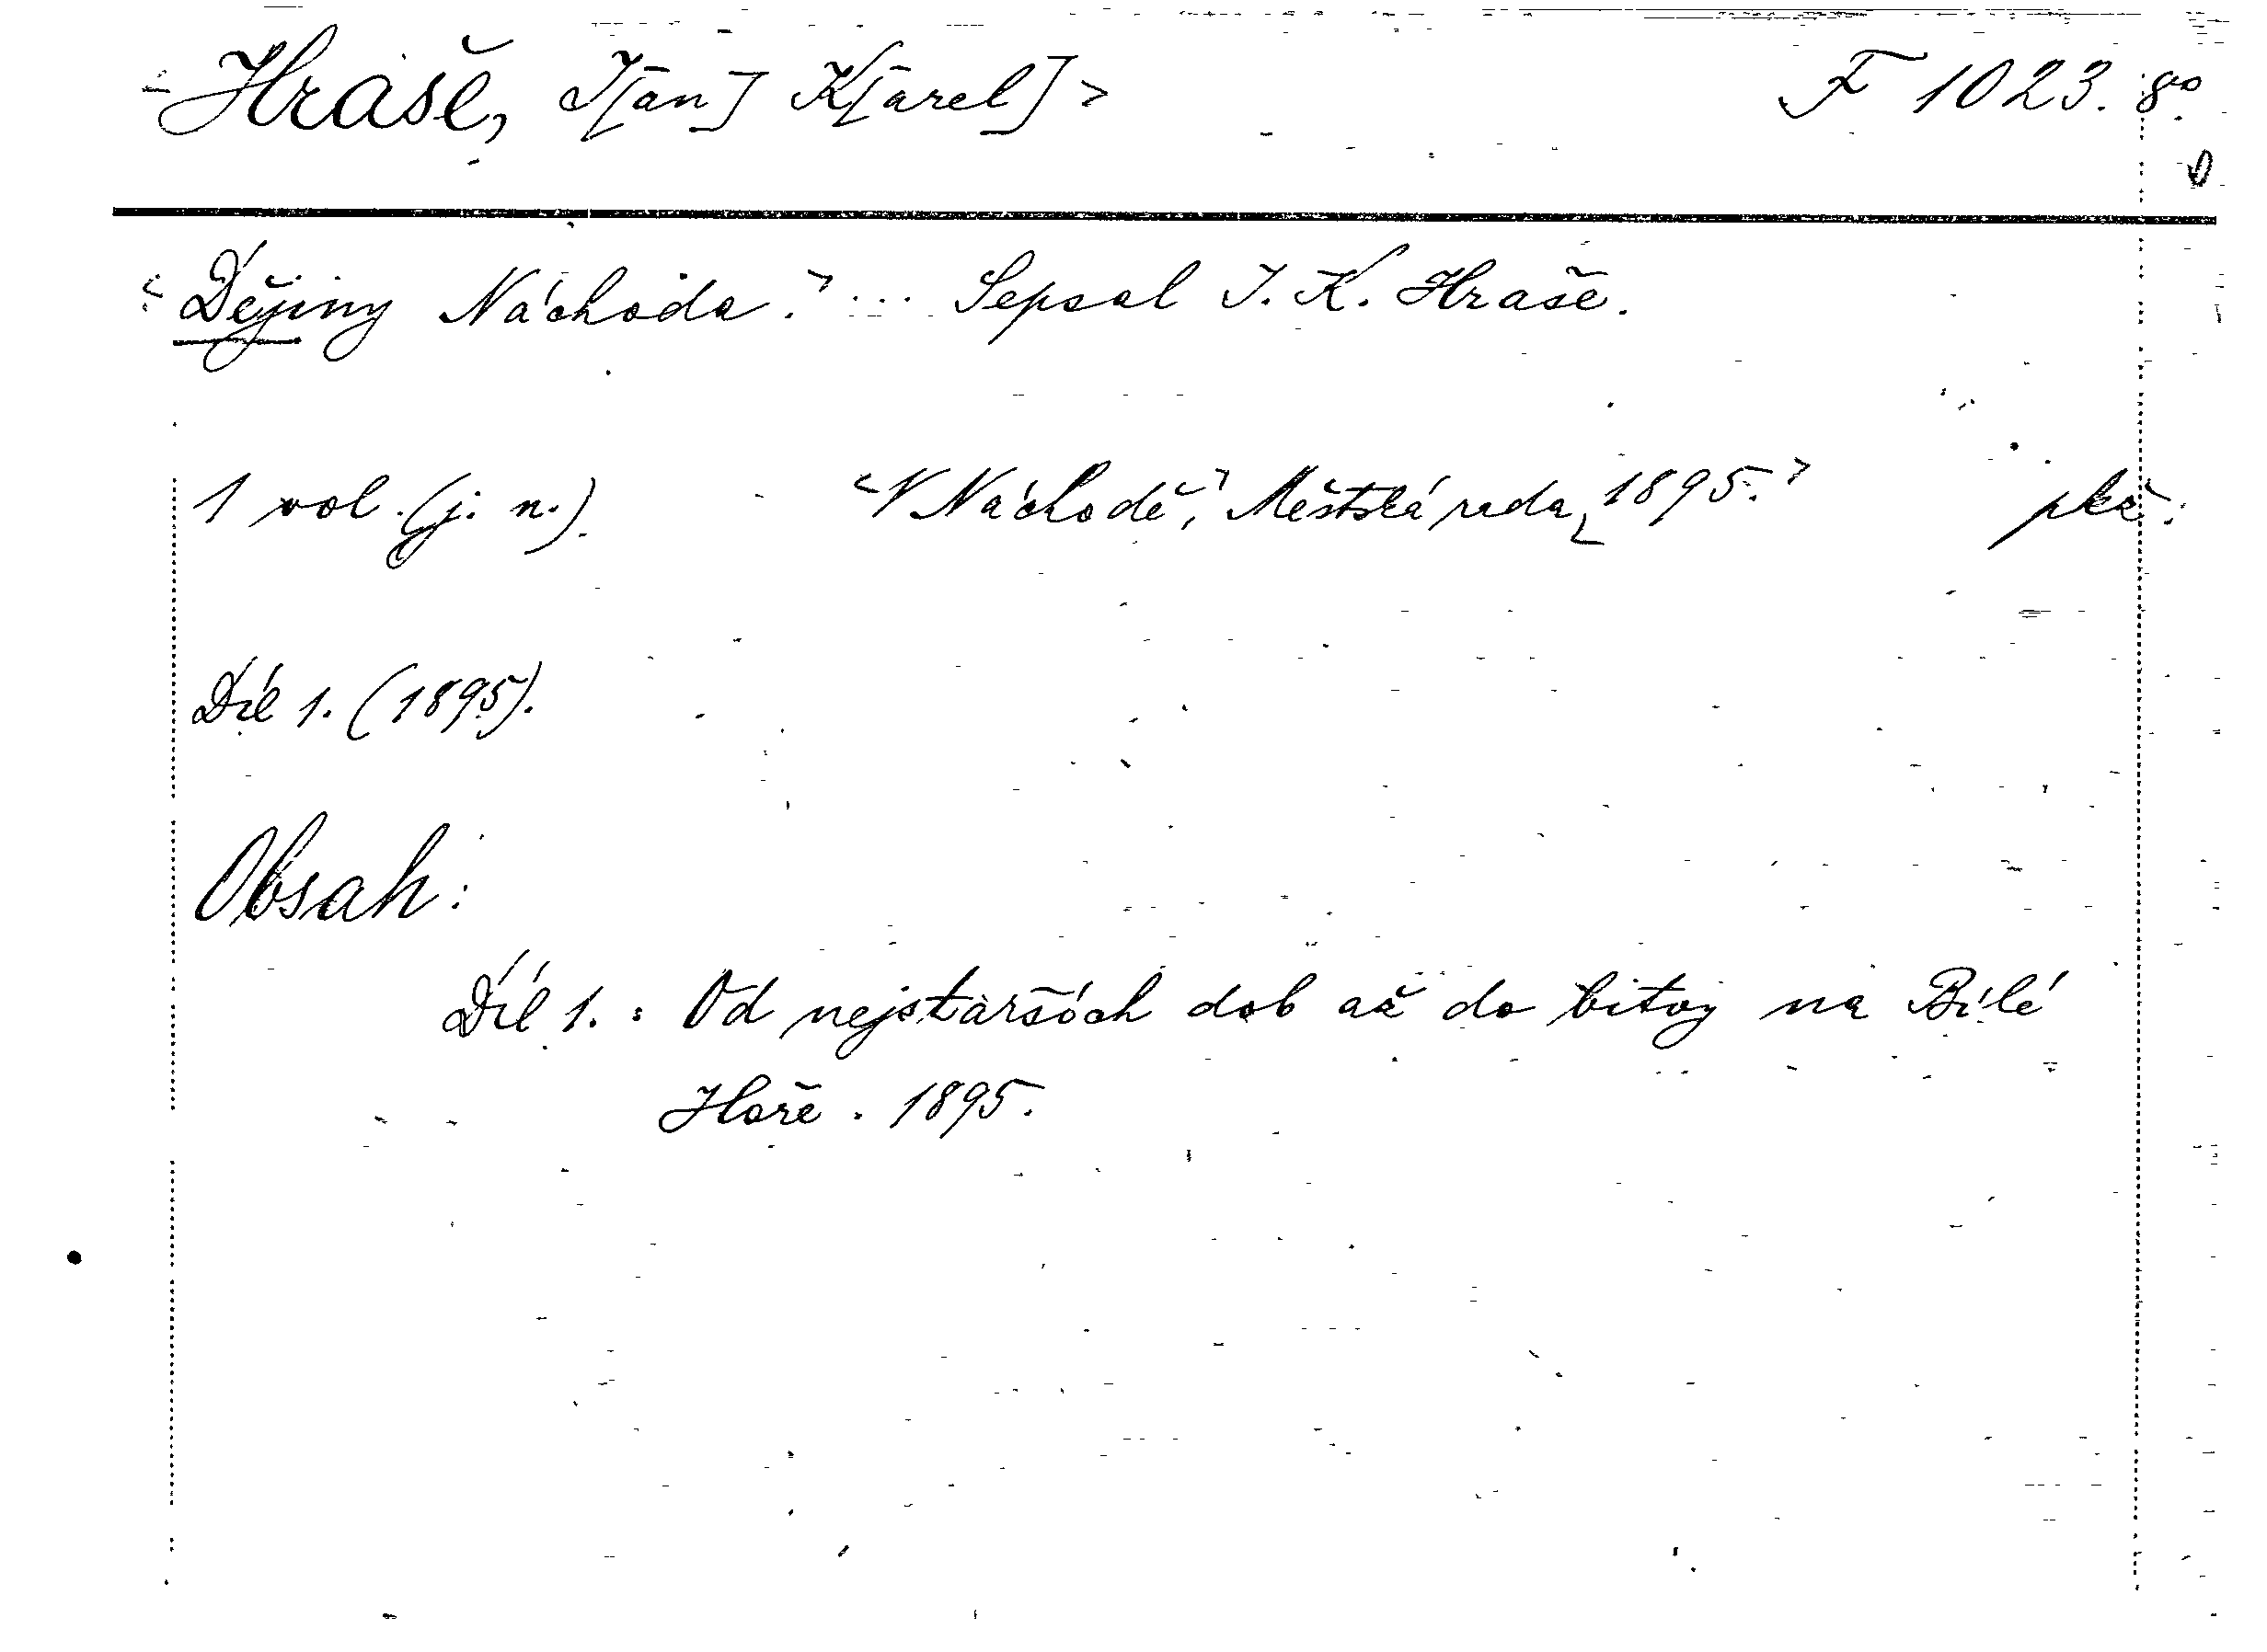 <Hraše, J[an] K[arel]> F 1023. 8°
<Dějiny Náchoda.> ... Sepsal J. K. Hraše.
1 vol. (j. n.). <V Náchodě,> Městská rada, <1895.> pkč.
Díl 1. (1895).
Obsah:
Díl 1. : Od nejstarších dob až do bitvy na Bílé
Hoře. 1895.